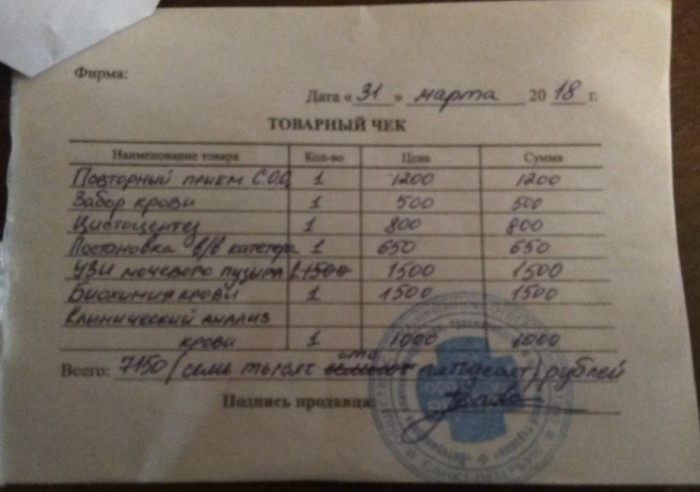 Фирма:
Дата «31» марта 2018 г.
ТОВАРНЫЙ ЧЕК
Наименование товара Кол-во Цена Сумма
Повторный прием С.О.О. 1 1200 1200
Забор крови 1 500 500
Цистоцентез 1 800 800
Постановка в/в катетера 1 650 650
УЗИ мочевого пузыря 1 1500 1500 1500
Биохимия крови 1 1500 1500
Клинический анализ
крови 1 1000 1000
Всего: 7150 (семь тысяч сто пятьдесят) рублей
Подпись продавца: